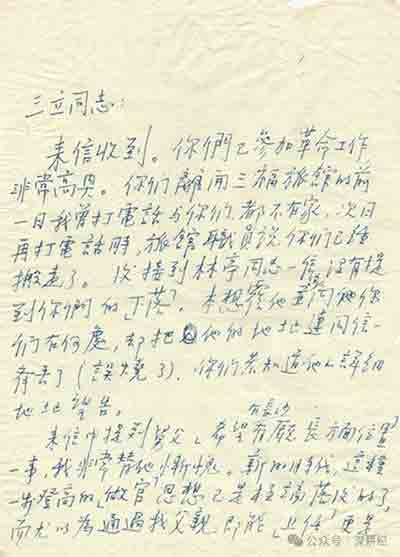 三立同志:
来信收到。你們已參加革命工作
非常高兴。你们離開三福旅館的前
一日我曾打電話与你们,都不在家,次日
再打電話時,旅館職員說你們已經
搬走了。後接到林亭同志一信,沒有提
到你們的"下落"。本想覆他並詢问他你
们在何處,却把他的地址連同信一
齊丢了(誤燒了)。你们若知道他的詳細
地址望告。
來信中提到舅父"希望在長沙有廳長方面位置"
一事,我非常替他慚愧。新的時代,這種
一步登高的"做官"思想已是极端落後的了,
而尤以為通過我父親即能"上任"更是
公众号·深耕纪